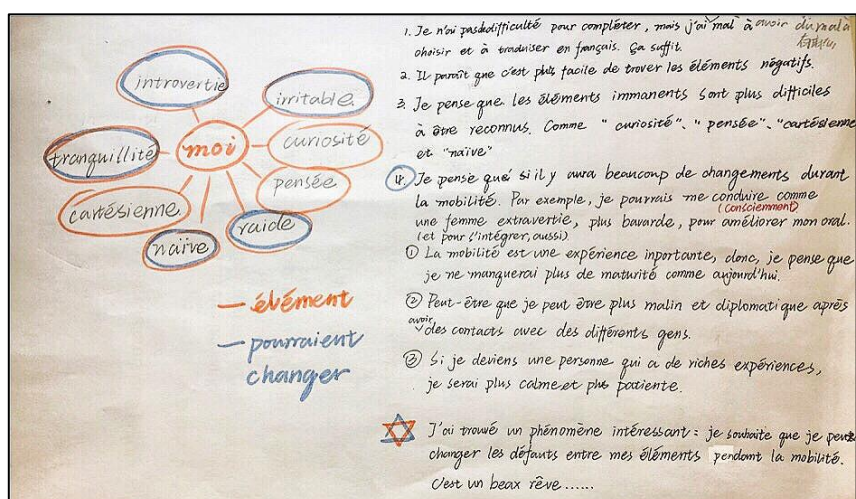 introvertie
irritable
curiosité
moi
tranquillité
pensée
cartésienne
raide
naïve
— élément
— pourraient
changer
1. Je n'ai pas de difficulté pour compléter, mais j'ai mal à avoir du mal à
choisir et à traduiser en français. Ça suffit.
2. Il paraît que c'est plus facile de trover les éléments négatifs.
3. Je pense que les éléments immanents sont plus difficiles
à être reconnus. Comme "curiosité", "pensée", "cartésienne"
et "naïve"
4. Je pense que si il y aura beaucoup de changements durant
la mobilité. Par exemple, je pourrais me conduire comme
(consciemment)
une femme extravertie, plus bavarde, pour améliorer mon oral.
(et pour l'intégrer, aussi)
① La mobilité est une expérience inportante, donc, je pense que
je ne manquerai plus de maturité comme aujourd'hui.
② Peut-être que je peut être plus malin et diplomatique après
avoir
des contacts avec des différents gens.
③ Si je deviens une personne qui a de riches expériences,
je serai plus calme et plus patiente.
J'ai trouvé un phénomène intéressant : je souhaite que je peux
changer les défauts entre mes éléments pendant la mobilité.
C'est un beax rêve......